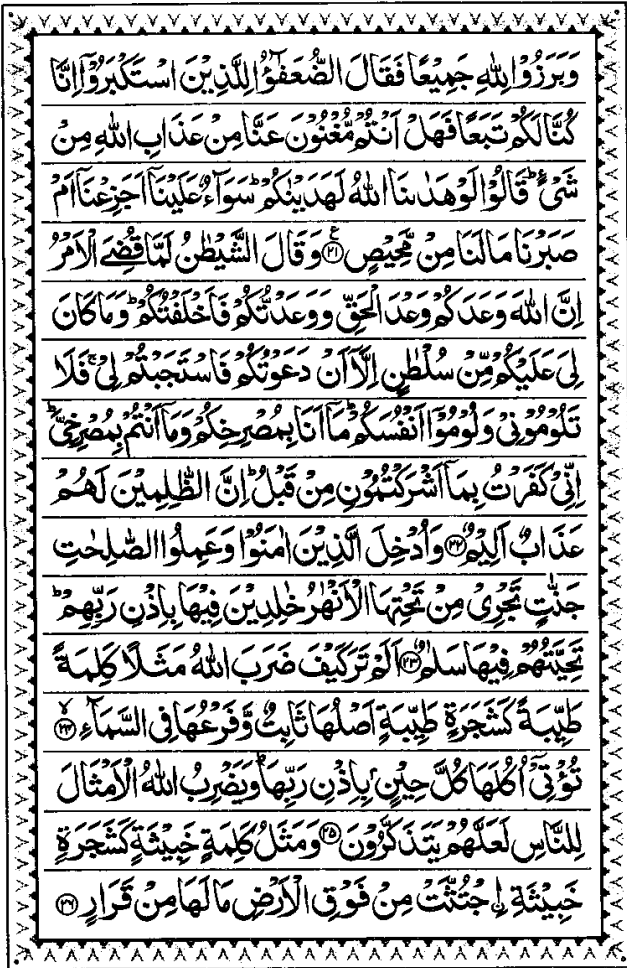 وَبَرَزُوْا لِلّٰهِ جَمِيْعًا فَقَالَ الضُّعَفٰٓؤُا لِلَّذِيْنَ اسْتَكْبَرُوْٓا اِنَّا
كُنَّا لَكُمْ تَبَعًا فَهَلْ اَنْتُمْ مُّغْنُوْنَ عَنَّا مِنْ عَذَابِ اللّٰهِ مِنْ
شَىْءٍ ؕ قَالُوْا لَوْ هَدٰىنَا اللّٰهُ لَهَدَيْنٰكُمْ ؕ سَوَآءٌ عَلَيْنَآ اَجَزِعْنَآ اَمْ
صَبَرْنَا مَا لَنَا مِنْ مَّحِيْصٍ ۧ﴿۲۱﴾ وَقَالَ الشَّيْطٰنُ لَمَّا قُضِىَ الْاَمْرُ
اِنَّ اللّٰهَ وَعَدَكُمْ وَعْدَ الْحَقِّ وَوَعَدْتُّكُمْ فَاَخْلَفْتُكُمْ ؕ وَمَا كَانَ
لِىَ عَلَيْكُمْ مِّنْ سُلْطٰنٍ اِلَّآ اَنْ دَعَوْتُكُمْ فَاسْتَجَبْتُمْ لِىْ ۚ فَلَا
تَلُوْمُوْنِىْ وَلُوْمُوْٓا اَنْفُسَكُمْ ؕ مَآ اَنَا بِمُصْرِخِكُمْ وَمَآ اَنْتُمْ بِمُصْرِخِىَّ ؕ
اِنِّىْ كَفَرْتُ بِمَآ اَشْرَكْتُمُوْنِ مِنْ قَبْلُ ؕ اِنَّ الظّٰلِمِيْنَ لَهُمْ
عَذَابٌ اَلِيْمٌ ﴿۲۲﴾ وَاُدْخِلَ الَّذِيْنَ اٰمَنُوْا وَعَمِلُوا الصّٰلِحٰتِ
جَنّٰتٍ تَجْرِىْ مِنْ تَحْتِهَا الْاَنْهٰرُ خٰلِدِيْنَ فِيْهَا بِاِذْنِ رَبِّهِمْ ؕ
تَحِيَّتُهُمْ فِيْهَا سَلٰمٌ ﴿۲۳﴾ اَلَمْ تَرَ كَيْفَ ضَرَبَ اللّٰهُ مَثَلًا كَلِمَةً
طَيِّبَةً كَشَجَرَةٍ طَيِّبَةٍ اَصْلُهَا ثَابِتٌ وَّفَرْعُهَا فِى السَّمَآءِ ۙ﴿۲۴﴾
تُؤْتِىْٓ اُكُلَهَا كُلَّ حِيْنٍۭ بِاِذْنِ رَبِّهَا ؕ وَيَضْرِبُ اللّٰهُ الْاَمْثَالَ
لِلنَّاسِ لَعَلَّهُمْ يَتَذَكَّرُوْنَ ﴿۲۵﴾ وَمَثَلُ كَلِمَةٍ خَبِيْثَةٍ كَشَجَرَةٍ
خَبِيْثَةِ ۨ اجْتُثَّتْ مِنْ فَوْقِ الْاَرْضِ مَا لَهَا مِنْ قَرَارٍ ﴿۲۶﴾